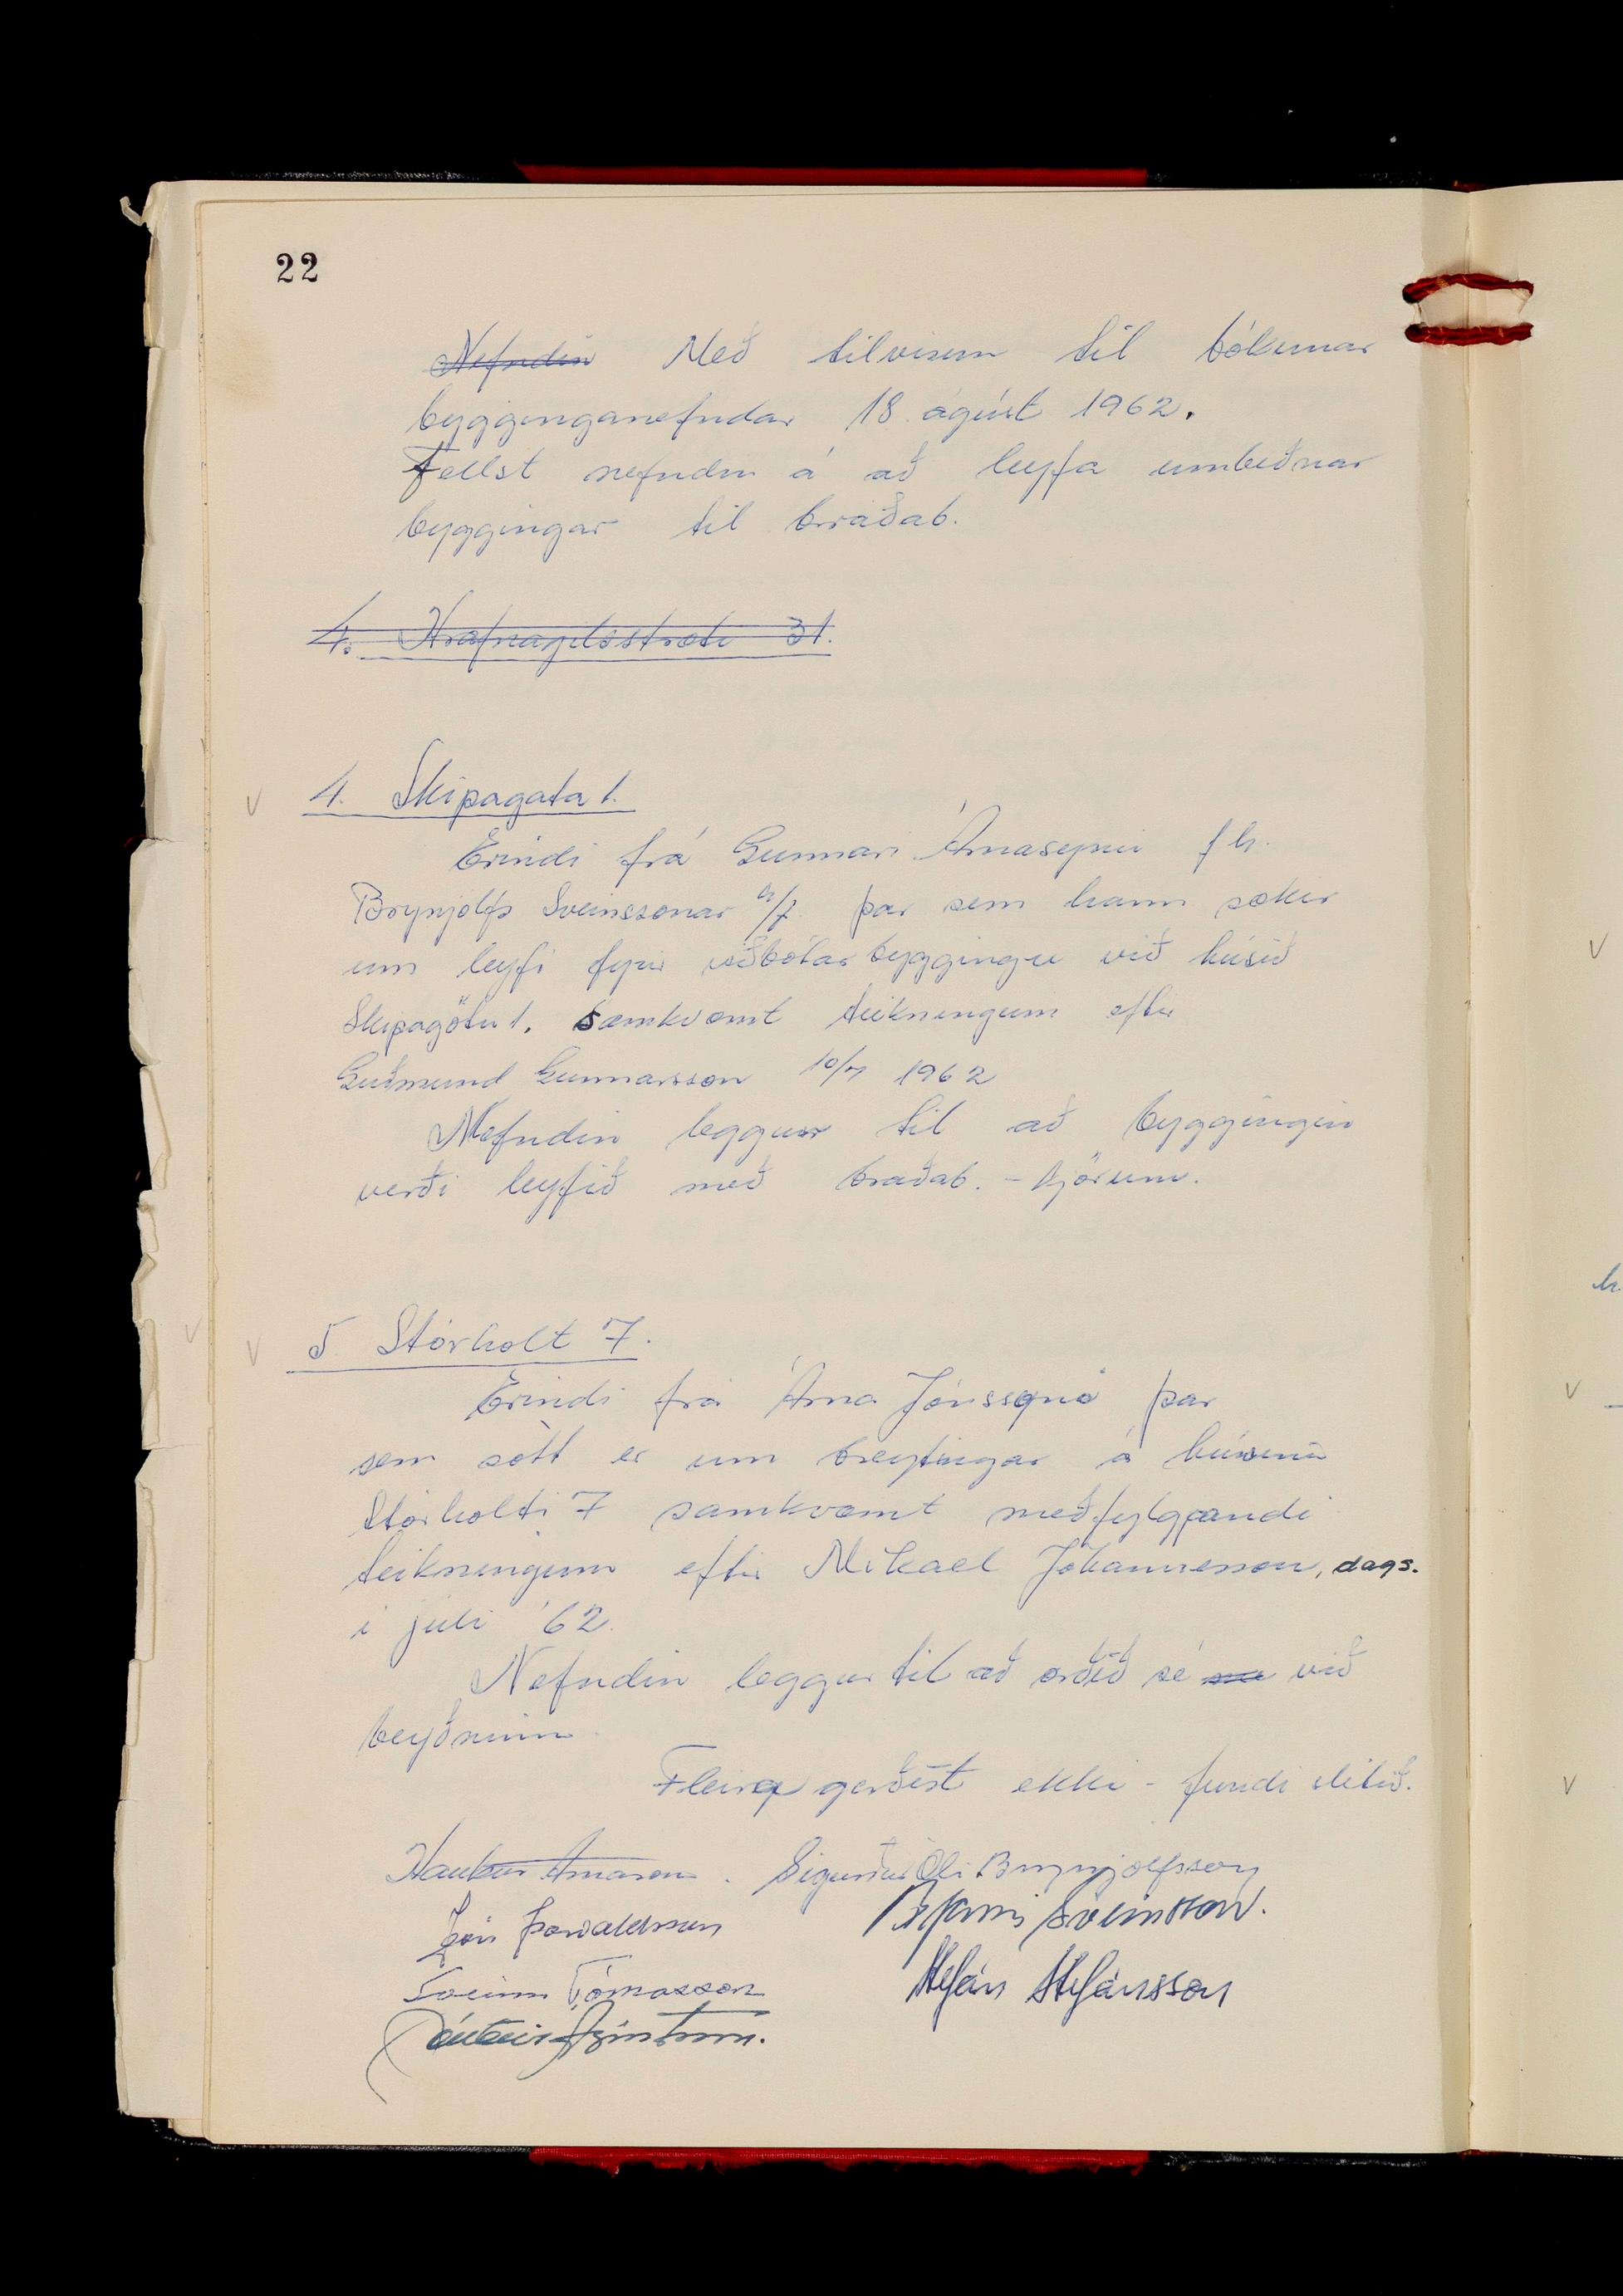 22
Nefndin Með tilvisun til bókunar
bygginganefndar 18. ágúst 1962.
Fellst nefndin á að leyfa umbeðnar
byggingar til bráðab.
4. Hrafnagilsstræti 31.
4. Skipagata 1.
Erindi frá Gunnari Árnasyni f h.
Brynjólfs Sveinssonar þar sem hann sækir
um leyfi fyrir viðbótarbyggingu við húsið
Skipagötu 1. Samkvæmt teikningum eftir
Guðmund Gunnarsson 10/7 1962
Nefndin leggur til að byggingin
verði leyfið með bráðab. - kjörum.
5 Stórholt 7.
Erindi frá Árna Jónssyni þar
sem sótt er um breytingar á húsinu
Stórholti 7 samkvæmt meðfylgjandi
teikningum eftir Mikael Jóhannesson, dags.
i júli '62.
Nefndin leggur til að orðið sé við
beyðninni.
Fleira gerðist ekki - fundi slitið.
Haukur Árnason. Sigurður Óli Brynjólfsson
Jón Þorvaldsson Bjarni Sveinsson.
Sveinn Tómasson Stefán Stefánsson